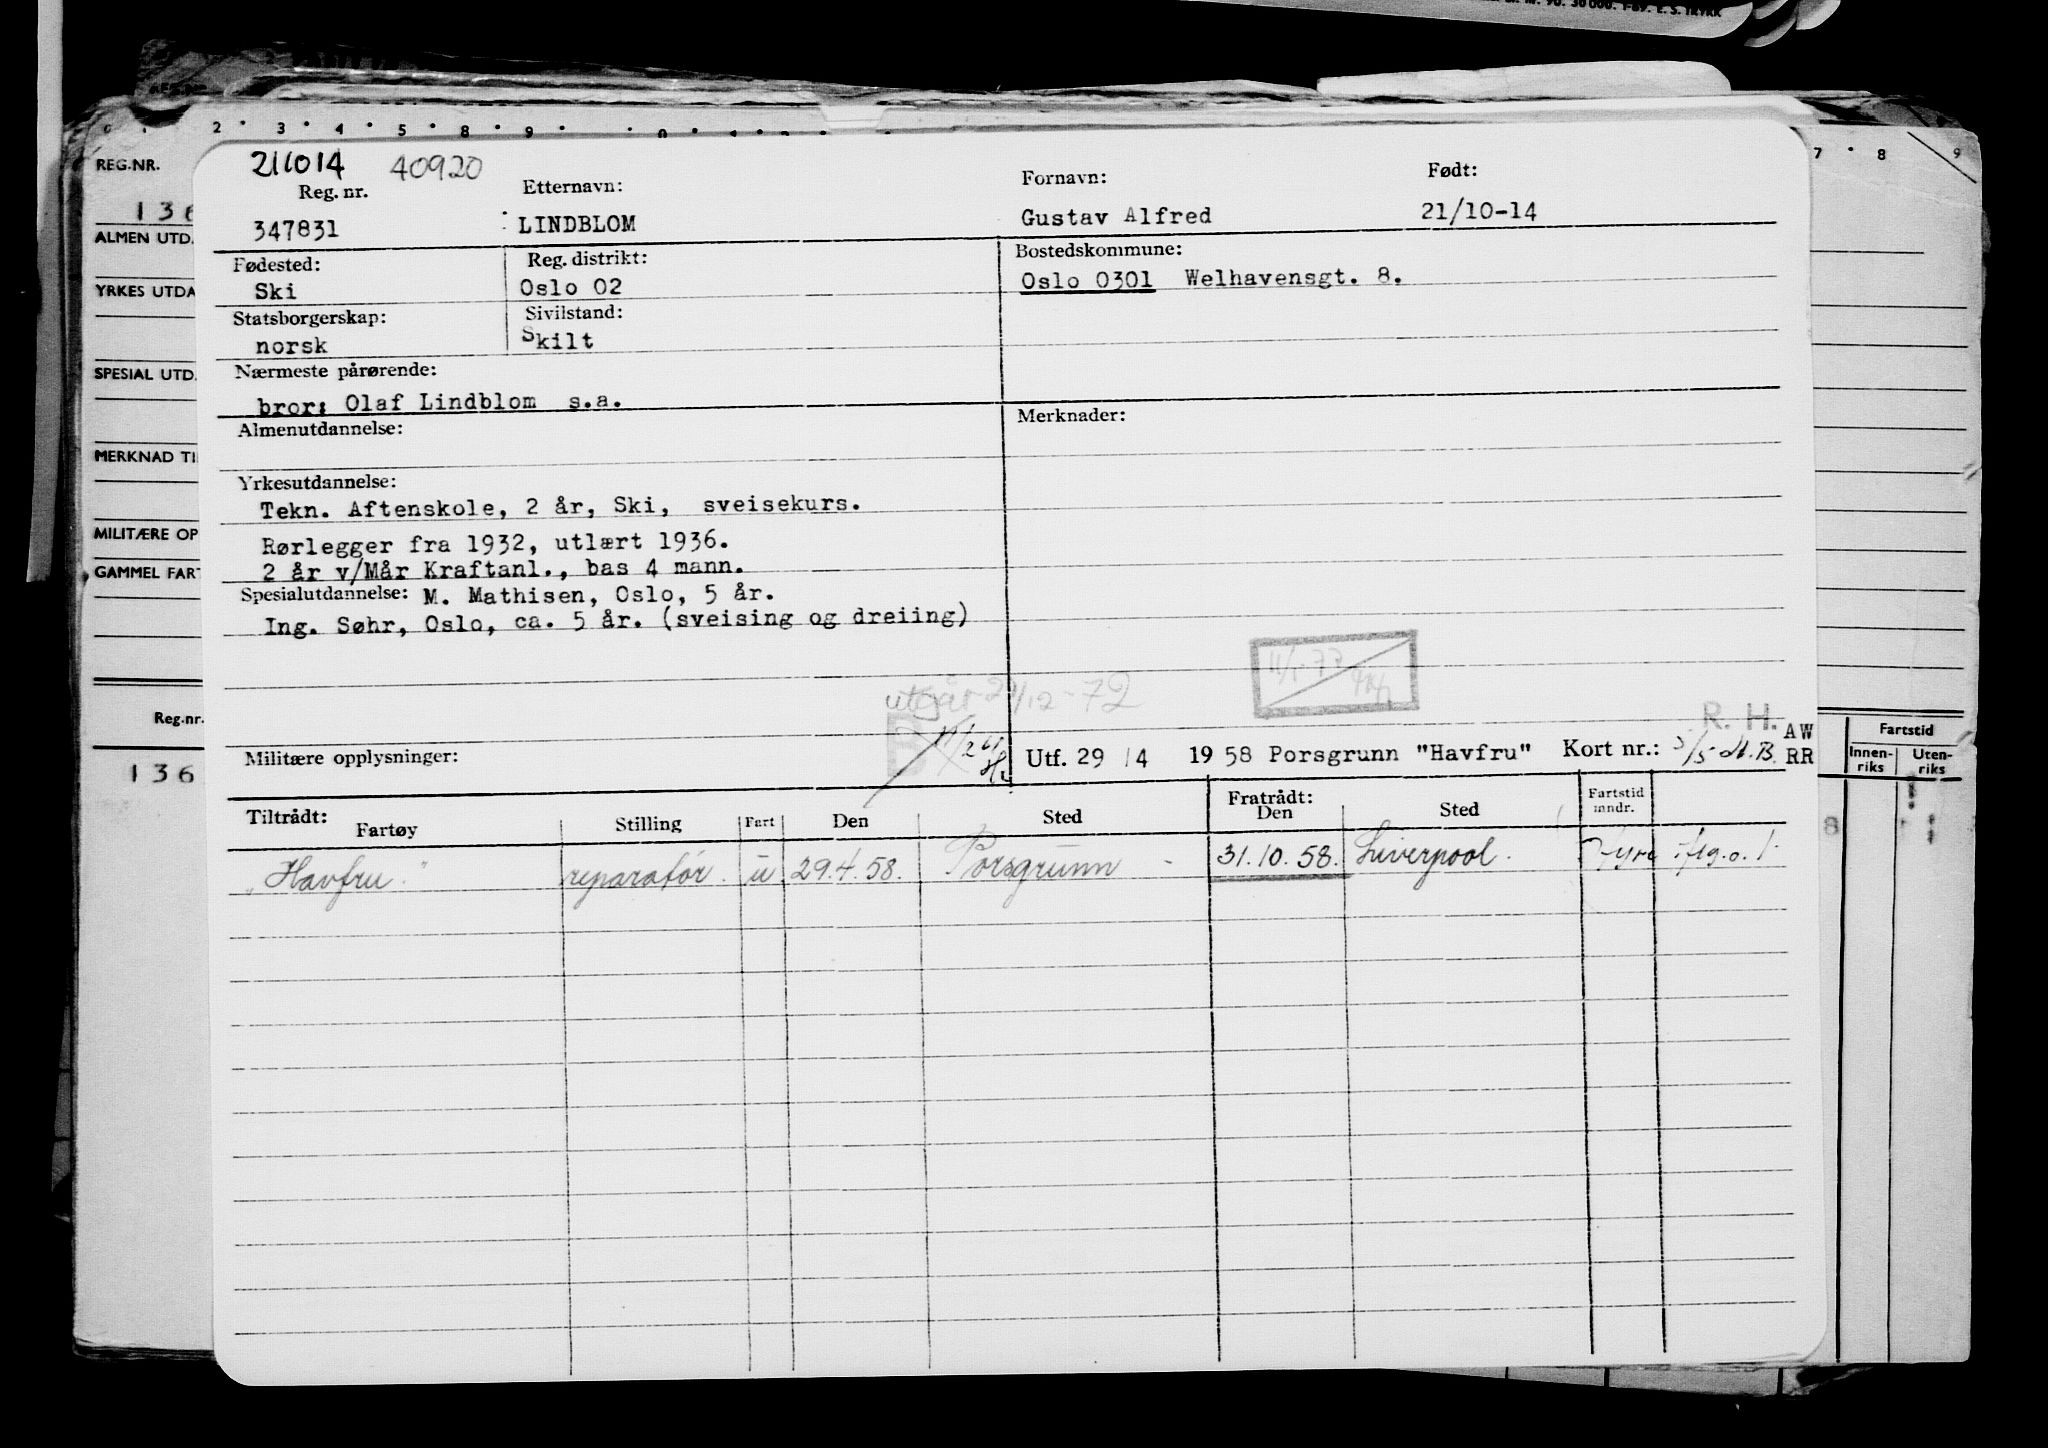 2 3 4 5 8 9
7 8 9
REG.NR.
136
ALMEN UTD.
YRKES UTDA
SPESIAL UTD.
MERKNAD TI
MILITÆRE OP
GAMMEL FART
Reg.nr.
136
211014 40920
Reg. nr. Etternavn: Fornavn: Født:
347831 LINDBLOM Gustav Alfred 21/10-14
Fødested: Reg. distrikt: Bostedskommune:
Ski Oslo 02 Oslo 0301 Welhavensgt. 8.
Statsborgerskap: Sivilstand:
norsk Skilt
Nærmeste pårørende:
bror: Olaf Lindblom s.a.
Almenutdannelse: Merknader:
Yrkesutdannelse:
Tekn. Aftenskole, 2 år, Ski, sveisekurs.
Rørlegger fra 1932, utlært 1936.
2 år v/Mår Kraftanl., bas 4 mann.
Spesialutdannelse: M. Mathisen, Oslo, 5 år.
Ing. Søhr, Oslo, ca. 5 år. (sveising og dreiing)
utgår 12-72
R. H. AW
Militære opplysninger: Utf. 29 /4 1958 Porsgrunn "Havfru" Kort nr.: RR
Fartstid
Innen-riks Uten-riks
Tiltrådt: Fratrådt: Fartstid
Fartøy Stilling Fart Den Sted Den Sted mndr.
"Havfru." reparatør. u 29.4.58. Porsgrunn - 31.10.58. Liverpool.
8